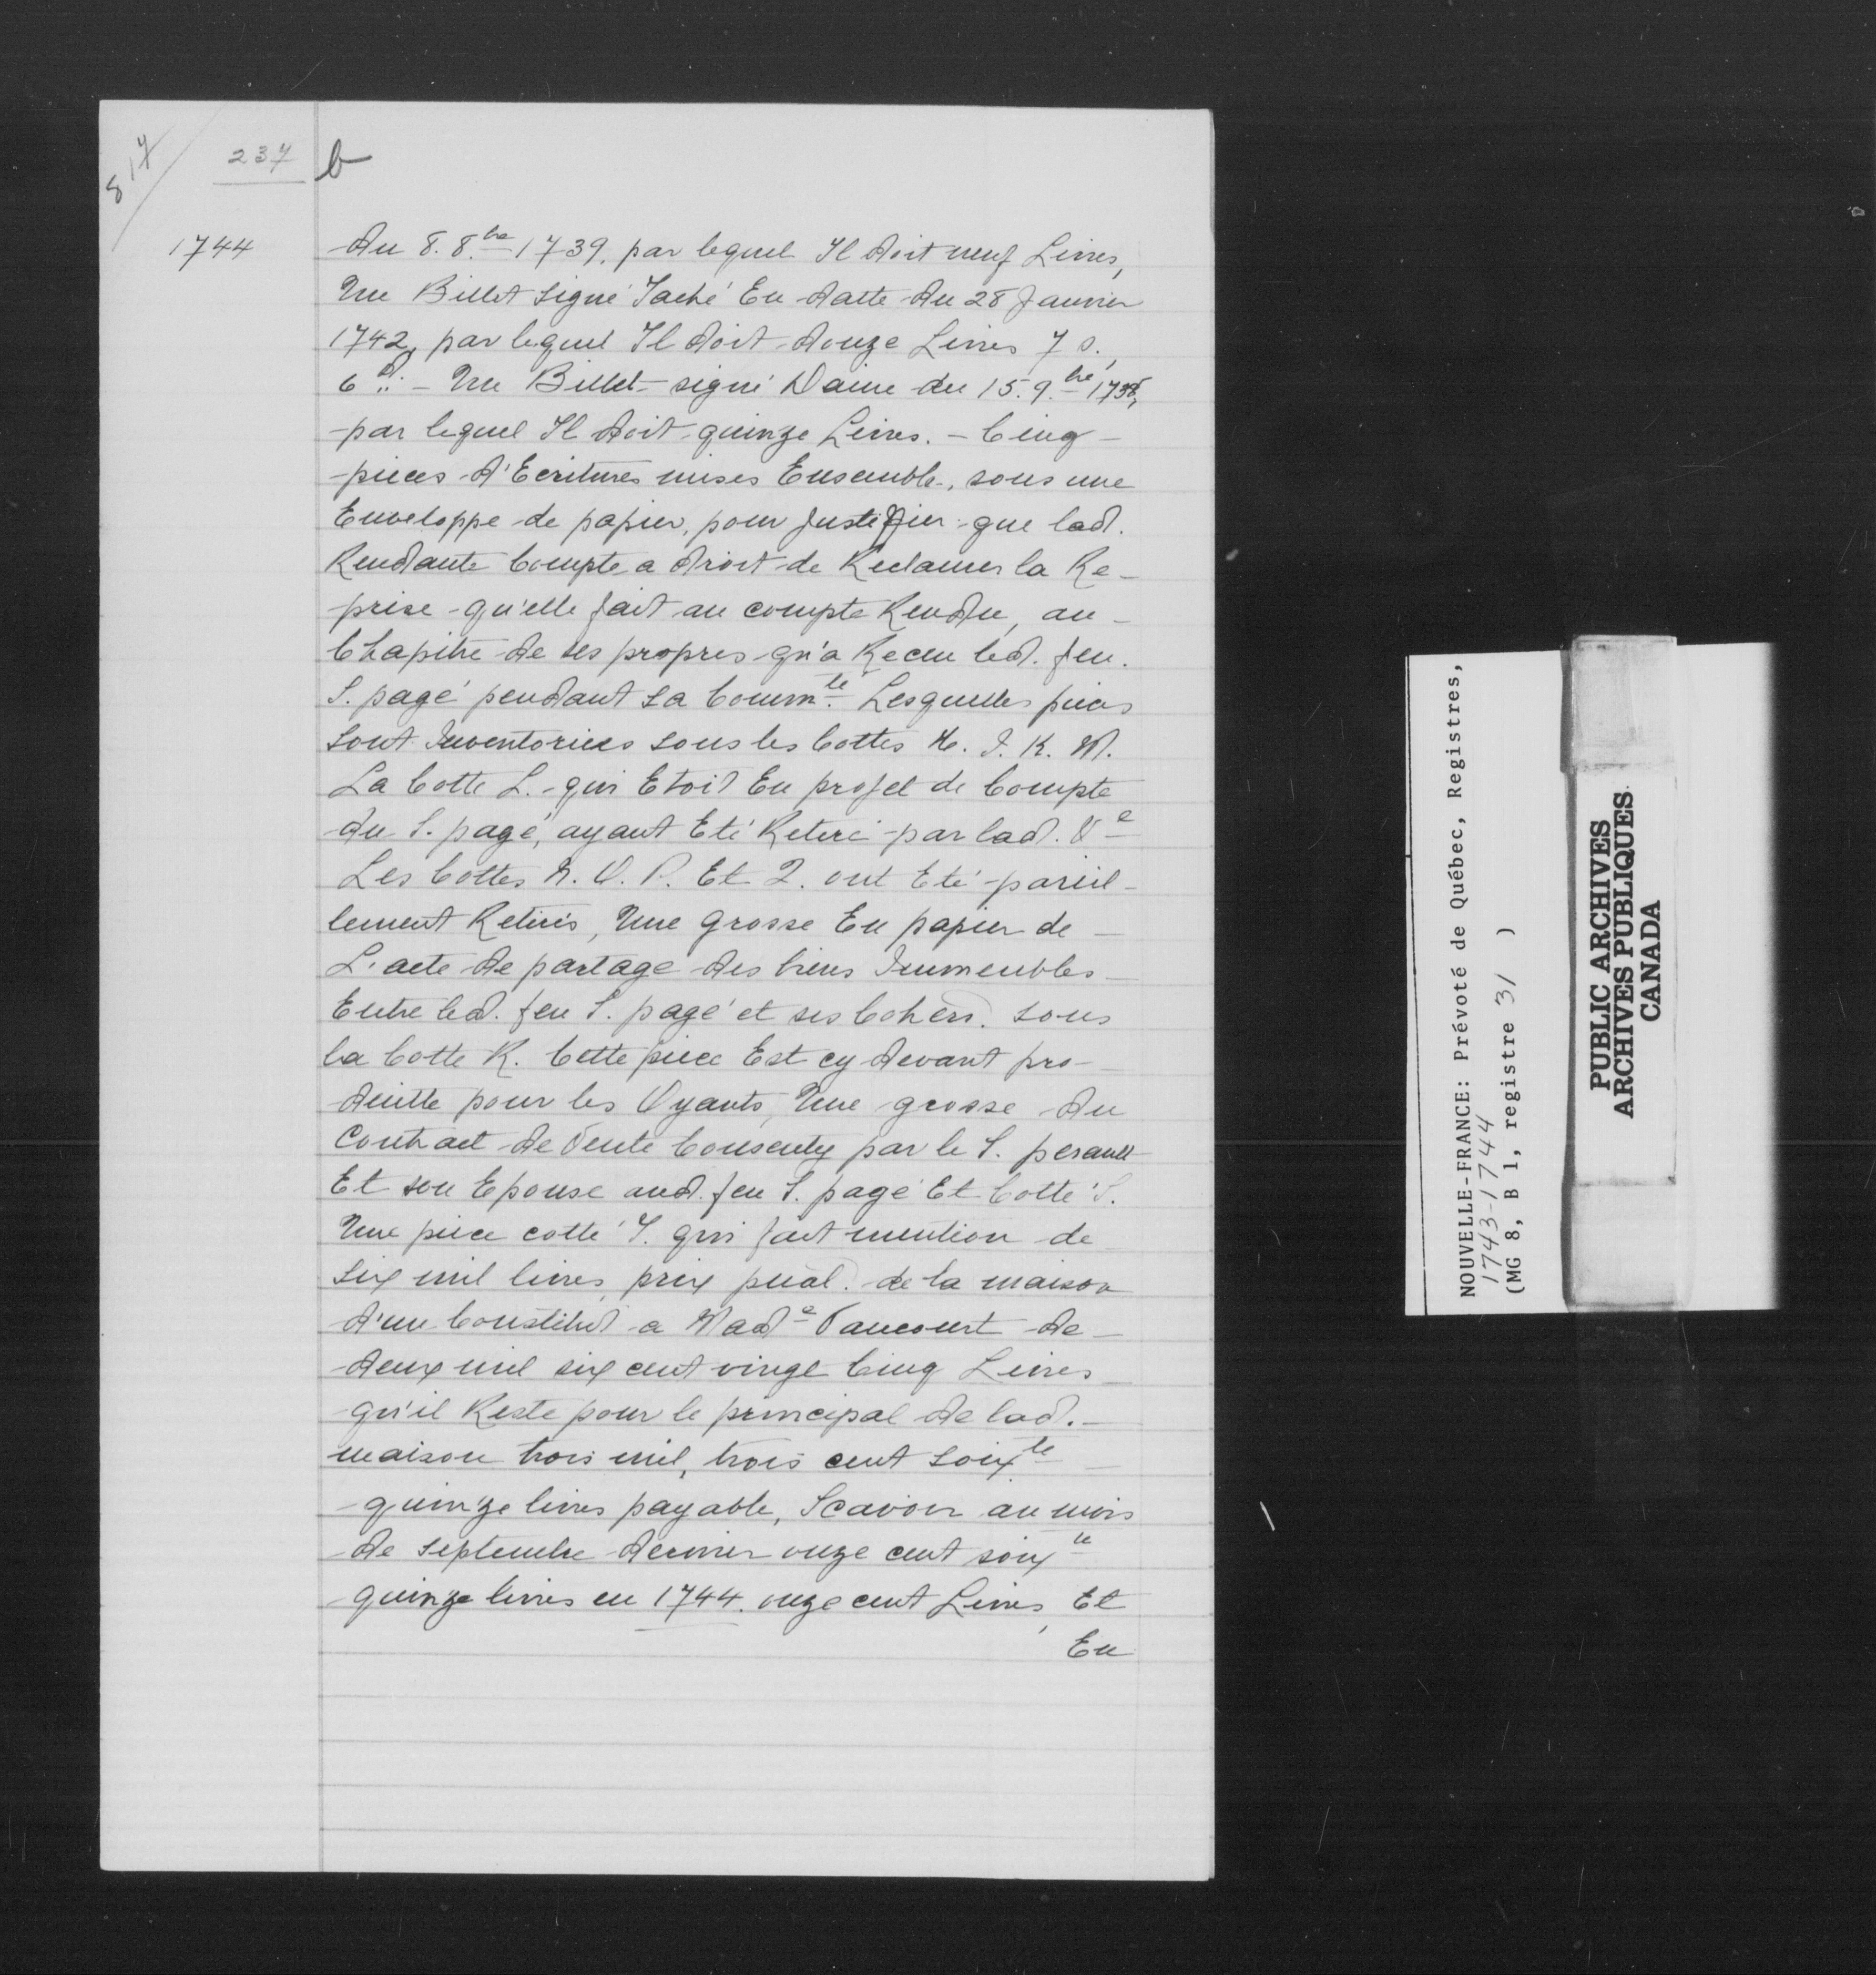 817
237 b
1744
du 8. 8.bre 1739. par lequel Il doit neuf Livres,
Une Billet signé Taché En datte du 28 Janvier
1742, par lequel Il doit douze Livres 7 s.,
6 d. - Un Billet signé Daine du 15. 9.bre
par lequel Il doit quinze Livres. - Cinq -
pieces d'Ecritures mises Ensemble, sous une
Enveloppe de papier, pour Justiffier que lad.
Rendante Compte a droit de Reclamer la Re-
prise qu'elle fait au compte Rendu, au -
Chapitre de ses propres qu'a Receu led. feu.
S. pagé pendant sa Comm.té Lesquelles pieces
sont Inventoriees sous les Cottes H. I. K. M.
La Cotte L. qui Etoit En projet de Compte
du S. pagé, ayant Eté Retiré par lad. Ve
Les Cottes N. O. P. Et Q. ont Eté pareil-
lement Retirés, Une grosse En papier de -
L'acte de partage des biens Immeubles -
Entre led. feu S. pagé et ses Coheri. sous
la Cotte R. Cette piece Est cy devant pro-
duitte pour les Oyants, Une grosse du
Contract de Vente Consenty par le S. perault
Et son Epouse aud. feu S. pagé Et Cotté S.
Une piece cotté T. qui fait mention de
six mil livres, prix pual. de la maison
d'un Constitut a Made Vancourt de -
deux mil six cent vingt Cinq Livres -
qu'il Reste pour le principal de lad. -
maison trois mil, trois cent soixte -
quinze livres payable, Scavoir au mois
de septembre dernier onze cent soixte
quinze livres en 1744. onze cent Livres, Et
En
NOUVELLE-FRANCE: Prévoté de Québec, Registres,
1743-1744
(MG 8, B 1, registre 31 )
PUBLIC ARCHIVES
ARCHIVES PUBLIQUES
CANADA